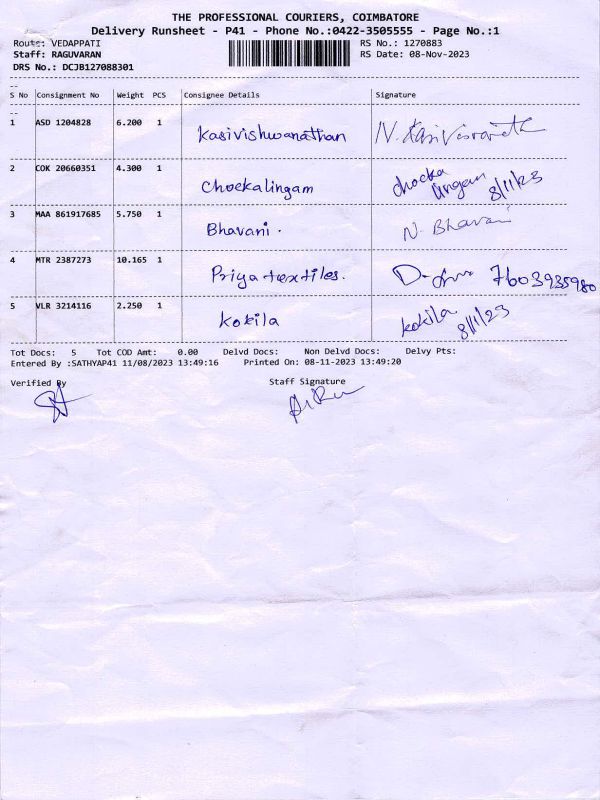 THE PROFESSIONAL COURIERS, COIMBATORE
Delivery Runsheet - P41 - Phone No.:0422-3505555 - Page No.:1
Route: VEDAPPATI RS No.: 1270883
Staff: RAGUVARAN RS Date: 08-Nov-2023
DRS No.: DCJB127088301
S No Consignment No Weight PCS Consignee Details Signature
1 ASD 1204828 6.200 1 Kasivishwanathan N. Kasi
2 COK 20660351 4.300 1 Chockalingam chocka
lingam 8/11/23
3 MAA 861917685 5.750 1 Bhavani. N. Bhavani
4 MTR 2387273 10.165 1 Priya textiles. 7603935980
5 VLR 3214116 2.250 1 Kokila kokila
8/11/23
Tot Docs: 5 Tot COD Amt: 0.00 Delvd Docs: Non Delvd Docs: Delvy Pts:
Entered By :SATHYAP41 11/08/2023 13:49:16 Printed On: 08-11-2023 13:49:20
Verified By Staff Signature